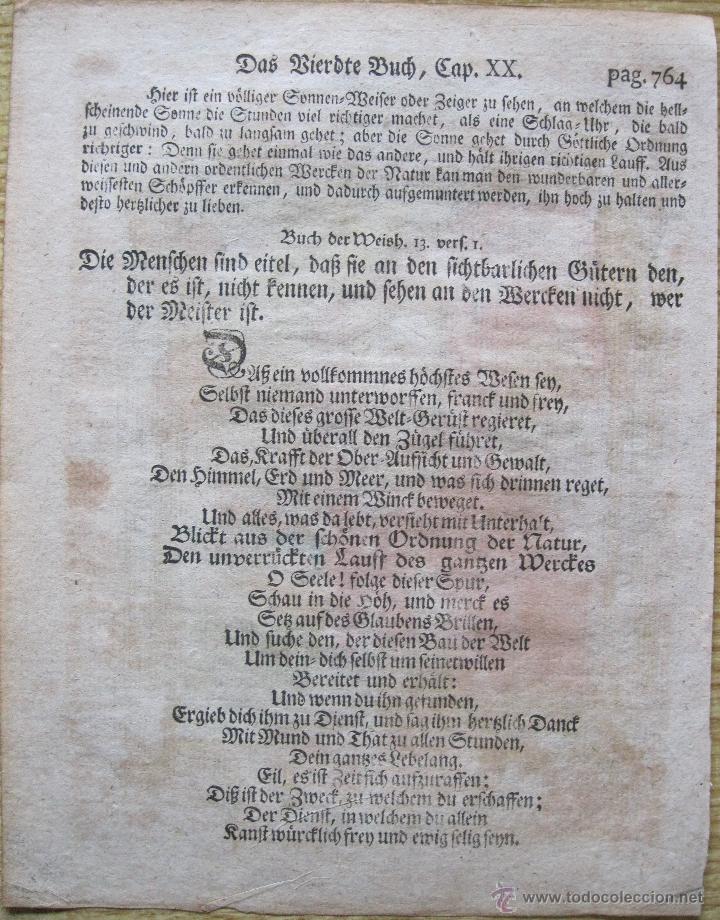 Das Vierdte Buch, Cap. XX. pag. 764
Hier ist ein völliger Sonnen-Weiser oder Zeiger zu sehen, an welchem die hell-
scheinende Sonne die Stunden viel richtiger machet, als eine Schlag-Uhr, die bald
zu geschwind, bald zu langsam gehet; aber die Sonne gehet durch Göttliche Ordnung
richtiger: Denn sie gehet einmal wie das andere, und hält ihrigen richtigen Lauff. Aus
diesen und andern ordentlichen Wercken der Natur kan man den wunderbaren und aller-
weissesten Schöpffer erkennen, und dadurch aufgemuntert werden, ihn hoch zu halten und
desto hertzlicher zu lieben.
Buch der Weish. 13. vers. 1.
Die Menschen sind eitel, daß sie an den sichtbarlichen Gütern den,
der es ist, nicht kennen, und sehen an den Wercken nicht, wer
der Meister ist.
DAß ein vollkommnes höchstes Wesen sey,
Selbst niemand unterworffen, franck und frey,
Das dieses grosse Welt-Gerüst regieret,
Und überall den Zügel führet,
Das, Krafft der Ober-Aufsicht und Gewalt,
Den Himmel, Erd und Meer, und was sich drinnen reget,
Mit einem Winck beweget.
Und alles, was da lebt, versieht mit Unterhalt,
Blickt aus der schönen Ordnung der Natur,
Den unverrückten Lauff des gantzen Werckes
O Seele! folge dieser Spur,
Schau in die Höh, und merck es
Setz auf des Glaubens Brillen,
Und suche den, der diesen Bau der Welt
Um dein- dich selbst um seinetwillen
Bereitet und erhält:
Und wenn du ihn gefunden,
Ergieb dich ihm zu Dienst, und sag ihm hertzlich Danck
Mit Mund und That zu allen Stunden,
Dein gantzes Lebelang.
Eil, es ist Zeit sich aufzuraffen:
Diß ist der Zweck, zu welchem du erschaffen;
Der Dienst, in welchem du allein
Kanst würcklich frey und ewig selig seyn.
www.todocoleccion.net